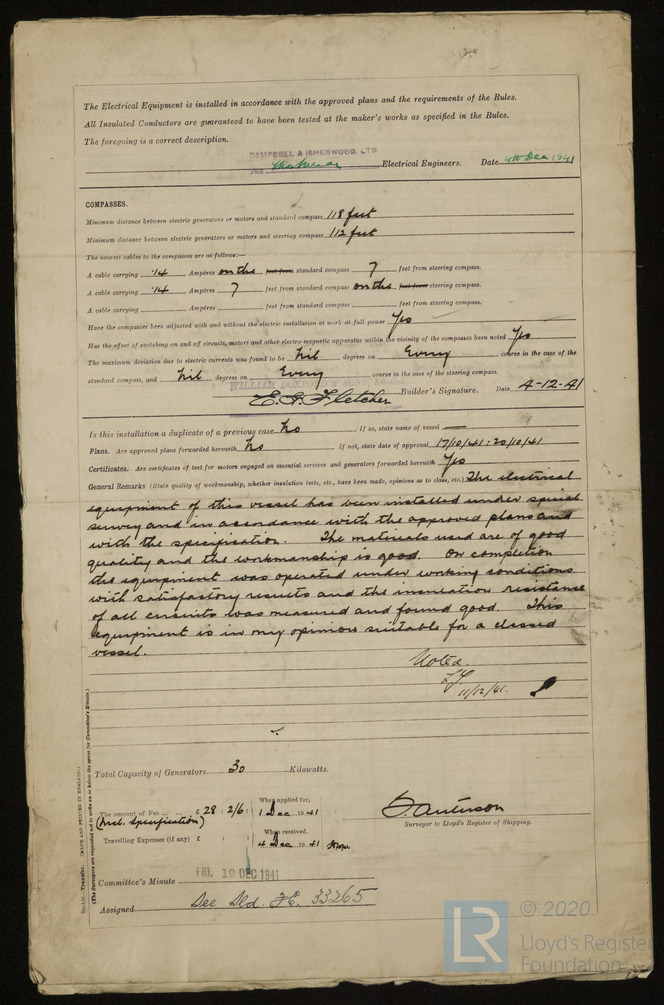 The Electrical Equipment is installed in accordance with the approved plans and the requirements of the Rules.
All Insulated Conductors are guaranteed to have been tested at the maker's works as specified in the Rules.
The foregoing is a correct description.
CAMPBELL & ISHERWOOD, LTD
Electrical Engineers. Date 4th Dec 1941
COMPASSES.
Minimum distance between electric generators or motors and standard compass 118 feet
Minimum distance between electric generators or motors and steering compass 112 feet
The nearest cables to the compasses are as follows:—
A cable carrying .14 Ampères on the feet from standard compass 7 feet from steering compass.
A cable carrying .14 Ampères 7 feet from standard compass on the feet from steering compass.
A cable carrying Ampères feet from standard compass feet from steering compass.
Have the compasses been adjusted with and without the electric installation at work at full power Yes
Has the effect of switching on and off circuits, motors and other electro-magnetic apparatus within the vicinity of the compasses been noted Yes
The maximum deviation due to electric currents was found to be Nil degrees on Every course in the case of the
standard compass, and Nil degrees on Every course in the case of the steering compass.
WILLIAM DOXFORD & SONS
E. G. Fletcher Builder's Signature. Date 4-12-41
Is this installation a duplicate of a previous case No If so, state name of vessel —
Plans. Are approved plans forwarded herewith No If not, state date of approval 17/10/41 : 20/10/41
Certificates. Are certificates of test for motors engaged on essential services and generators forwarded herewith Yes
General Remarks (State quality of workmanship, whether insulation tests, etc., have been made, opinions as to class, etc.) The electrical
equipment of this vessel has been installed under special
survey and in accordance with the approved plans and
with the specification. The materials used are of good
quality and the workmanship is good. On completion
the equipment was operated under working conditions
with satisfactory results and the insulation resistance
of all circuits was measured and found good. This
equipment is in my opinion suitable for a classed
vessel.
Noted.
11/12/41.
Total Capacity of Generators 30 Kilowatts.
The amount of Fee ... £ 28 : 2/6 : When applied for, 1 Dec 1941
(Incl. Specification)
Travelling Expenses (if any) £ : : When received, 4 Dec 1941
Surveyor to Lloyd's Register of Shipping.
Committee's Minute FRI. 19 DEC 1941
Assigned See Sld. F.E. 33265
Transfer. (MADE AND PRINTED IN ENGLAND.)
(The Surveyors are requested not to write on or below the space for Committee's Minute.)
LR
© 2020
Lloyd's Register
Foundation